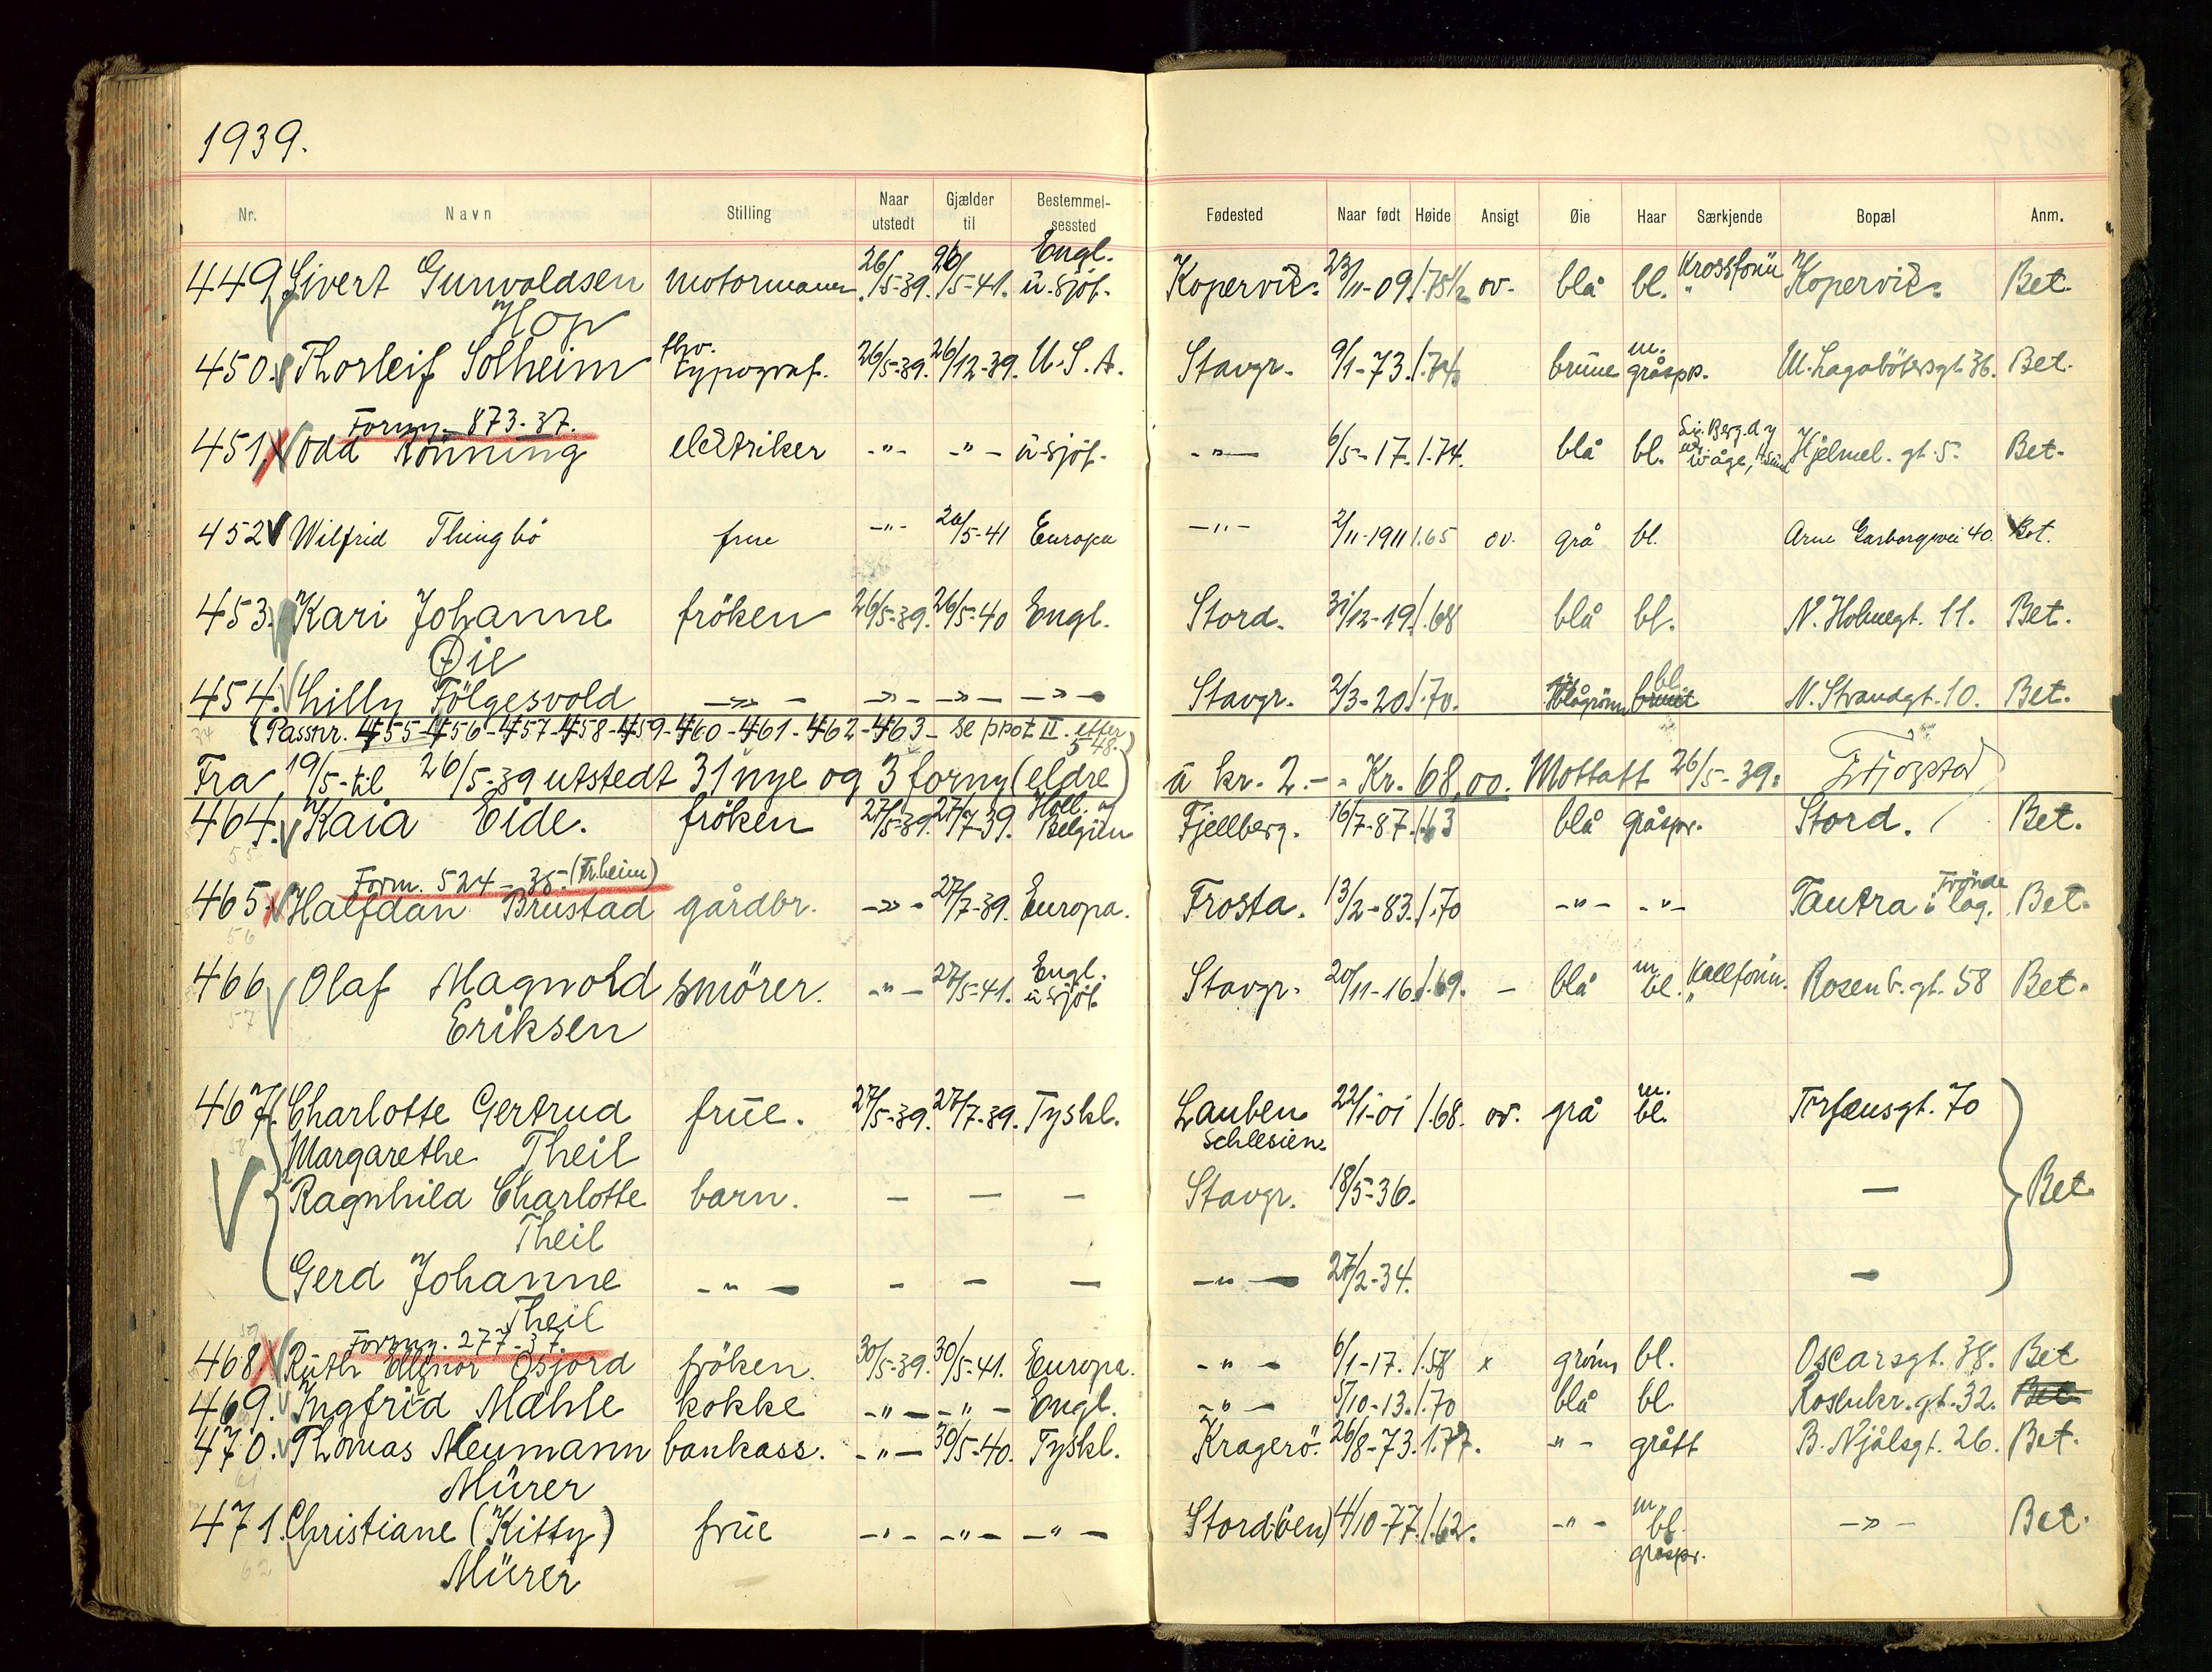 1939.
Nr. Navn Stilling Naar utstedt Gjælder til Bestemmelsessted Fødested Naar født Høide Ansigt Øie Haar Særkjende Bopæl Anm.
449 Sivert Gunvaldsen motormann 26/5-39. 26/5-41. Engl. u. sjöf. Kopervik. 23/11-09 1.75 1/2 ov. blå bl. Kopervik. Bet.
Hop
450. Thorleif Solheim fhv. typograf. 26/5-39. 26/12-39. U.S.A. Stavgr. 9/1-73. 1.74 brune m. gråspr. M. Lagabötersgt. 36. Bet.
Forny. 873-37.
451. Odd Rönning elektriker -"- -"- u. sjöf. -"- 6/5-17. 1.74. blå bl. Hjelmel. gt. 5. Bet.
452 Wilfrid Thingbö frue -"- 26/5-41 Europa -"- 2/11-1911 1.65 ov. grå bl. Arne Garborgsvei 40. Bet.
453. Kari Johanne fröken 26/5-39. 26/5-40 Engl. Stord. 31/12-19. 1.68 blå bl. N. Holmegt. 11. Bet.
Øie
454. Lilly Fölgesvold -"- -"- -"- -"- Stavgr. 2/3-20. 1.70. bl. N. Strandgt. 10. Bet.
(Passnr. 455-456-457-458-459-460-461-462-463- se ppot II. efter 548.)
Fra 19/5-til 26/5-39 utstedt 31 nye og 3 forny (eldre) a kr. 2.- = Kr. 68,00. Mottatt 26/5-39:
464. Kaia Eide. fröken 27/5-39. 27/7-39. Holl. og Belgien Fjellberg. 16/7-87. 1.63 blå gråspr. Stord. Bet.
Form. 524-38. (Tr.heim)
465. Halfdan Brustad gårdbr. -"- 27/7-39. Europa. Frosta. 13/2-83. 1.70 -"- -"- Tautra i Trönde lag. Bet.
466 Olaf Magnvold smörer. -"- 27/5-41. Engl. u. sjöf. Stavgr. 20/11-16. 1.69. - blå m. bl. Rosenb. gt. 58 Bet.
Eriksen
467. Charlotte Gertrud frue. 27/5-39. 27/7-39. Tyskl. Lauben Schlesien. 22/1-01 1.68. ov. grå m. bl. Torfæusgt. 70
Margarethe Theil
Ragnhild Charlotte barn. - - - Stavgr. 18/5-36. - Bet.
Theil
Gerd Johanne -"- - - - -"- 27/2-34. -
Theil
Forny. 277-37.
468 Ruth Ellinor Osjord fröken. 30/5-39. 30/5-41. Europa. -"- 6/1-17. 1.58 x grönn bl. Oscarsgt. 38. Bet
469. Ingfrid Mæhle kokke -"- -"- Engl. -"- 5/10-13. 1.70 blå bl. Rosenkr. gt. 32. Bet
470. Thomas Neumann bankass. -"- 30/5-40. Tyskl. Kragerö. 26/8-73. 1.77. -"- grått B. Njålsgt. 26. Bet.
Mürer
471. Christiane (Kitty) frue -"- -"- -"- Stord(öen) 4/10-77. 1.62. -"- m bl. gråspr. -"- Bet.
Mürer